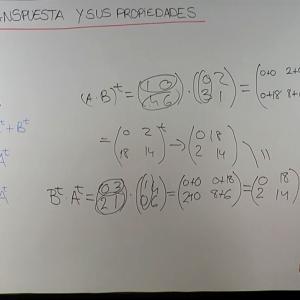 NSPUESTA Y SUS PROPIEDADES
(A·B)^t = (1 0 / 4 6) · (0 2 / 3 1) = (0+0 2+ / 0+18 8+
t + B^t
= (0 2 / 18 14)^t → (0 18 / 2 14)
A^t
B^t · A^t = (0 3 / 2 1) · (1 4 / 0 6) = (0+0 0+18 / 2+0 8+6) = (0 18 / 2 14)
A^t